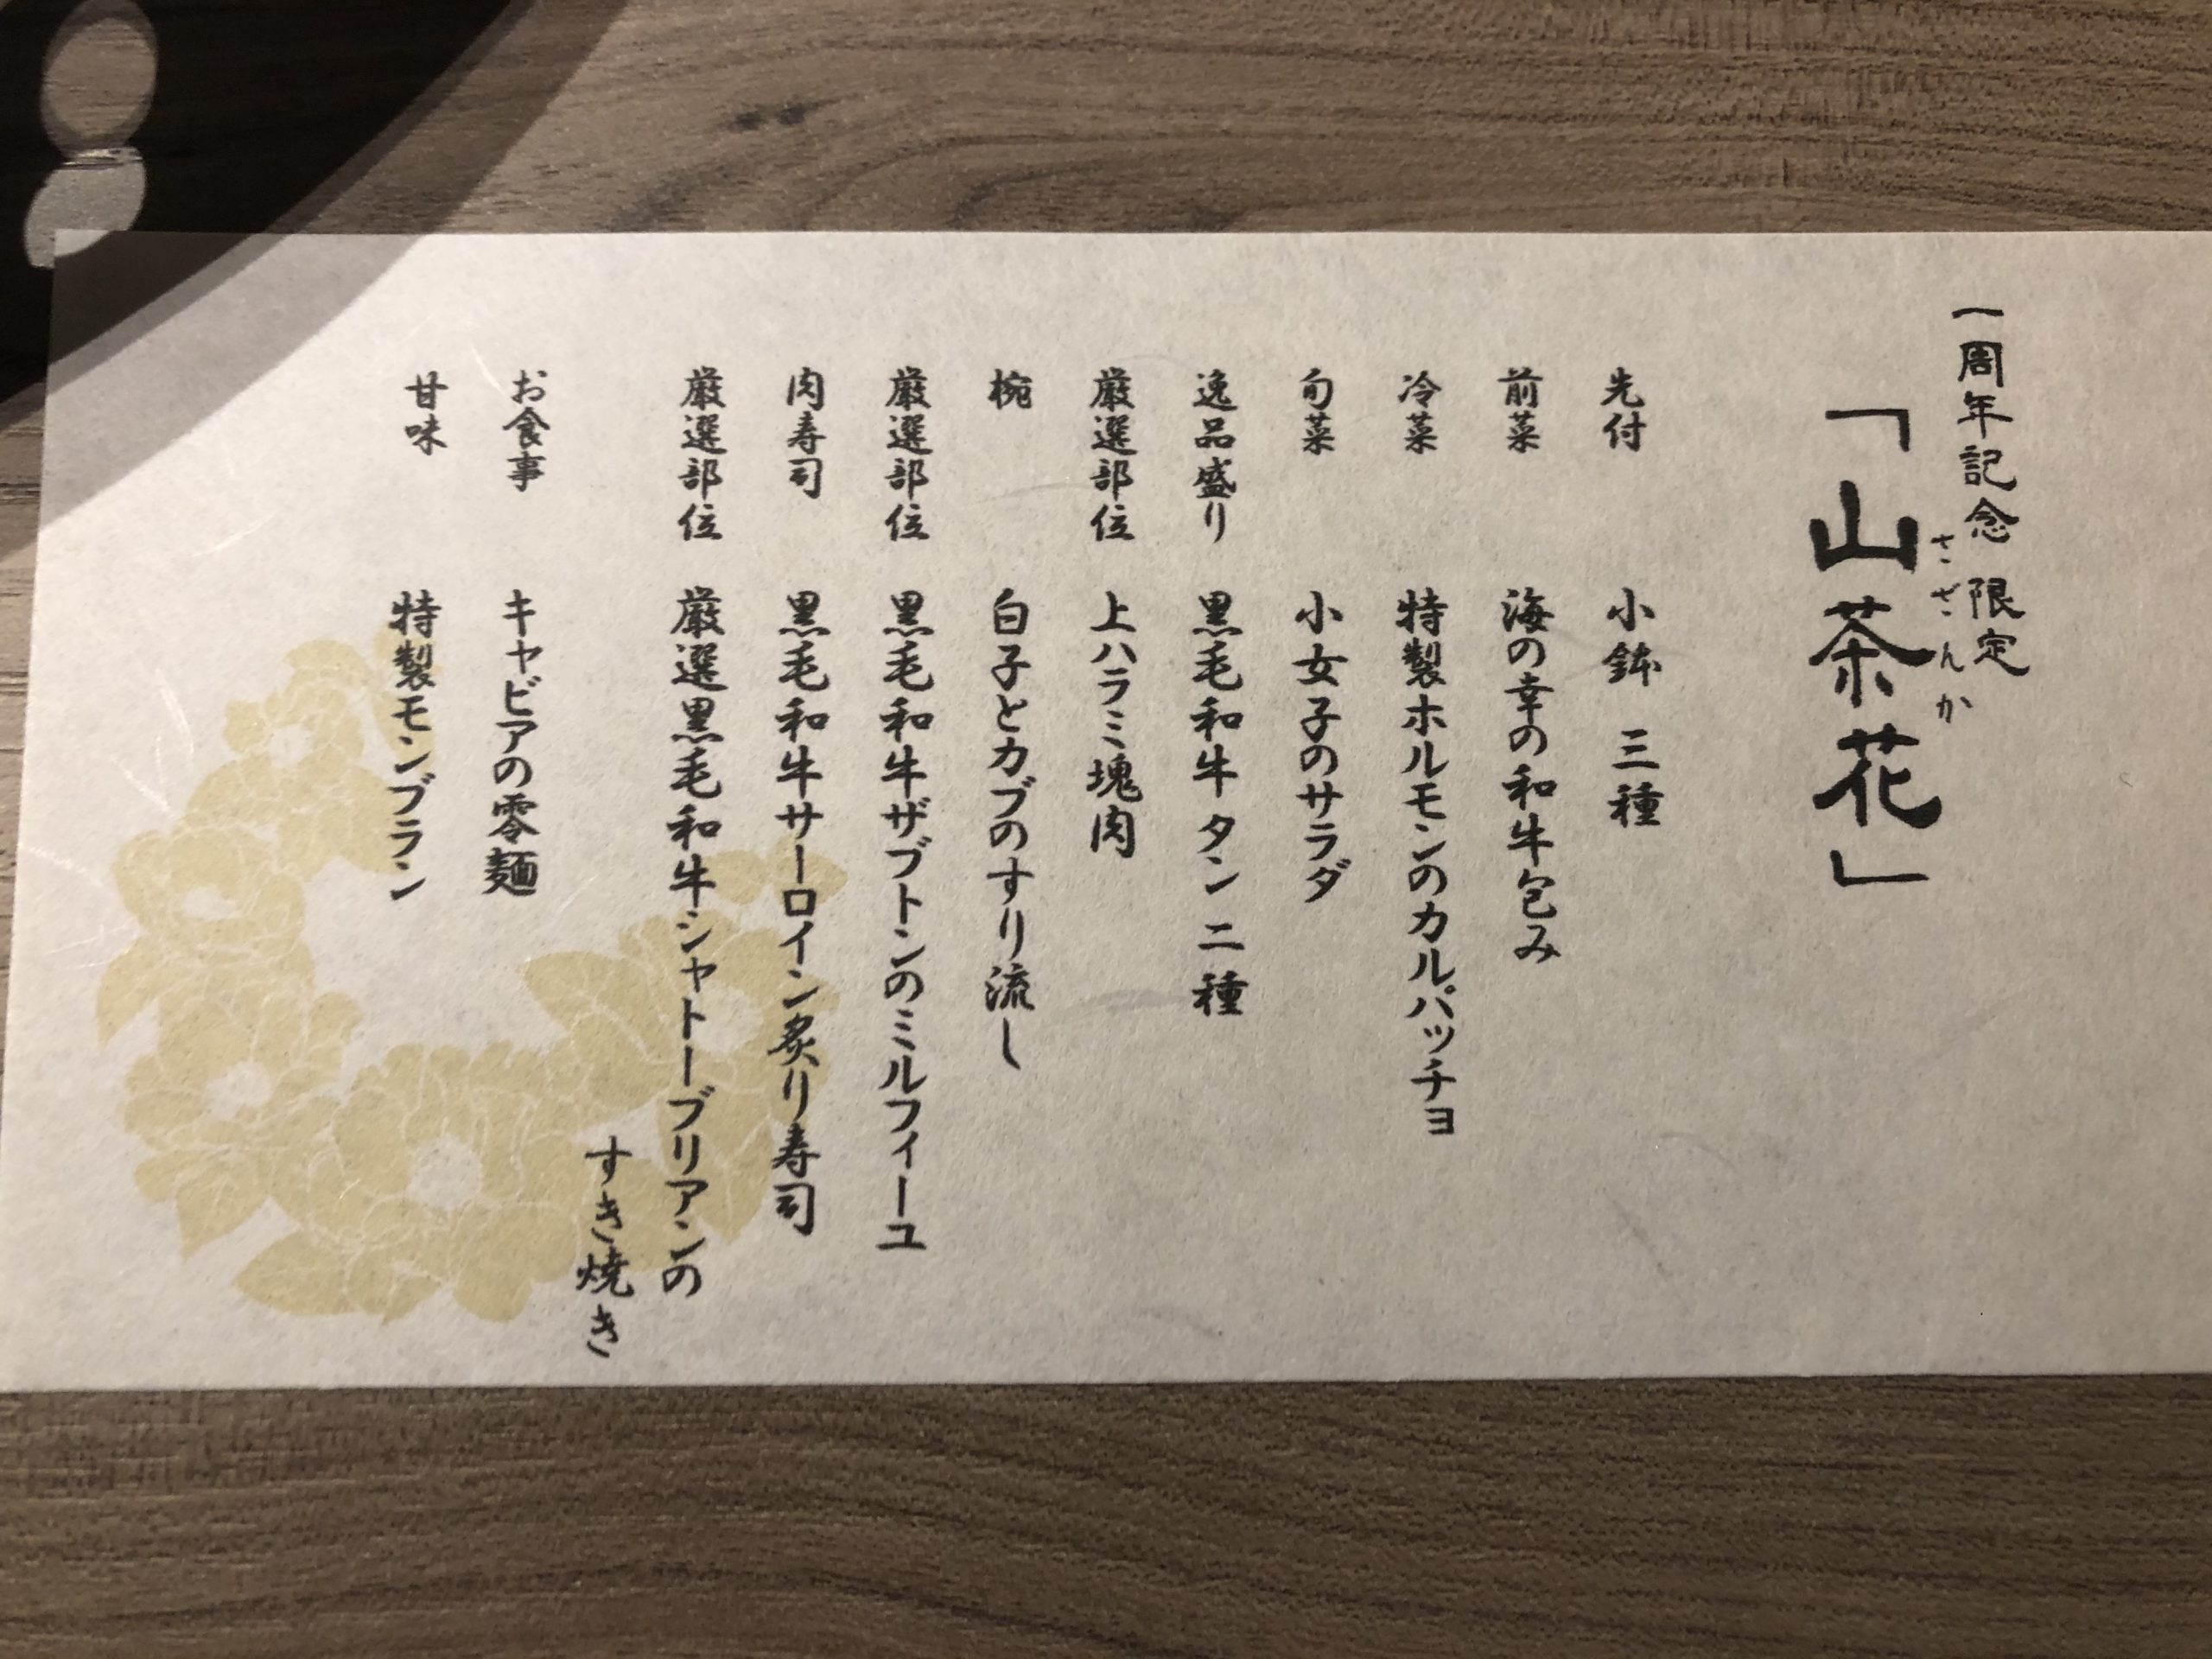 一周年記念 限定
「山茶花」
さざんか
先付 小鉢 三種
前菜 海の幸の和牛包み
冷菜 特製ホルモンのカルパッチョ
旬菜 小女子のサラダ
逸品盛り 黒毛和牛タン 二種
厳選部位 上ハラミ塊肉
椀 白子とカブのすり流し
厳選部位 黒毛和牛ザブトンのミルフィーユ
肉寿司 黒毛和牛サーロイン炙り寿司
厳選部位 厳選黒毛和牛シャトーブリアンの
すき焼き
お食事 キャビアの零麺
甘味 特製モンブラン